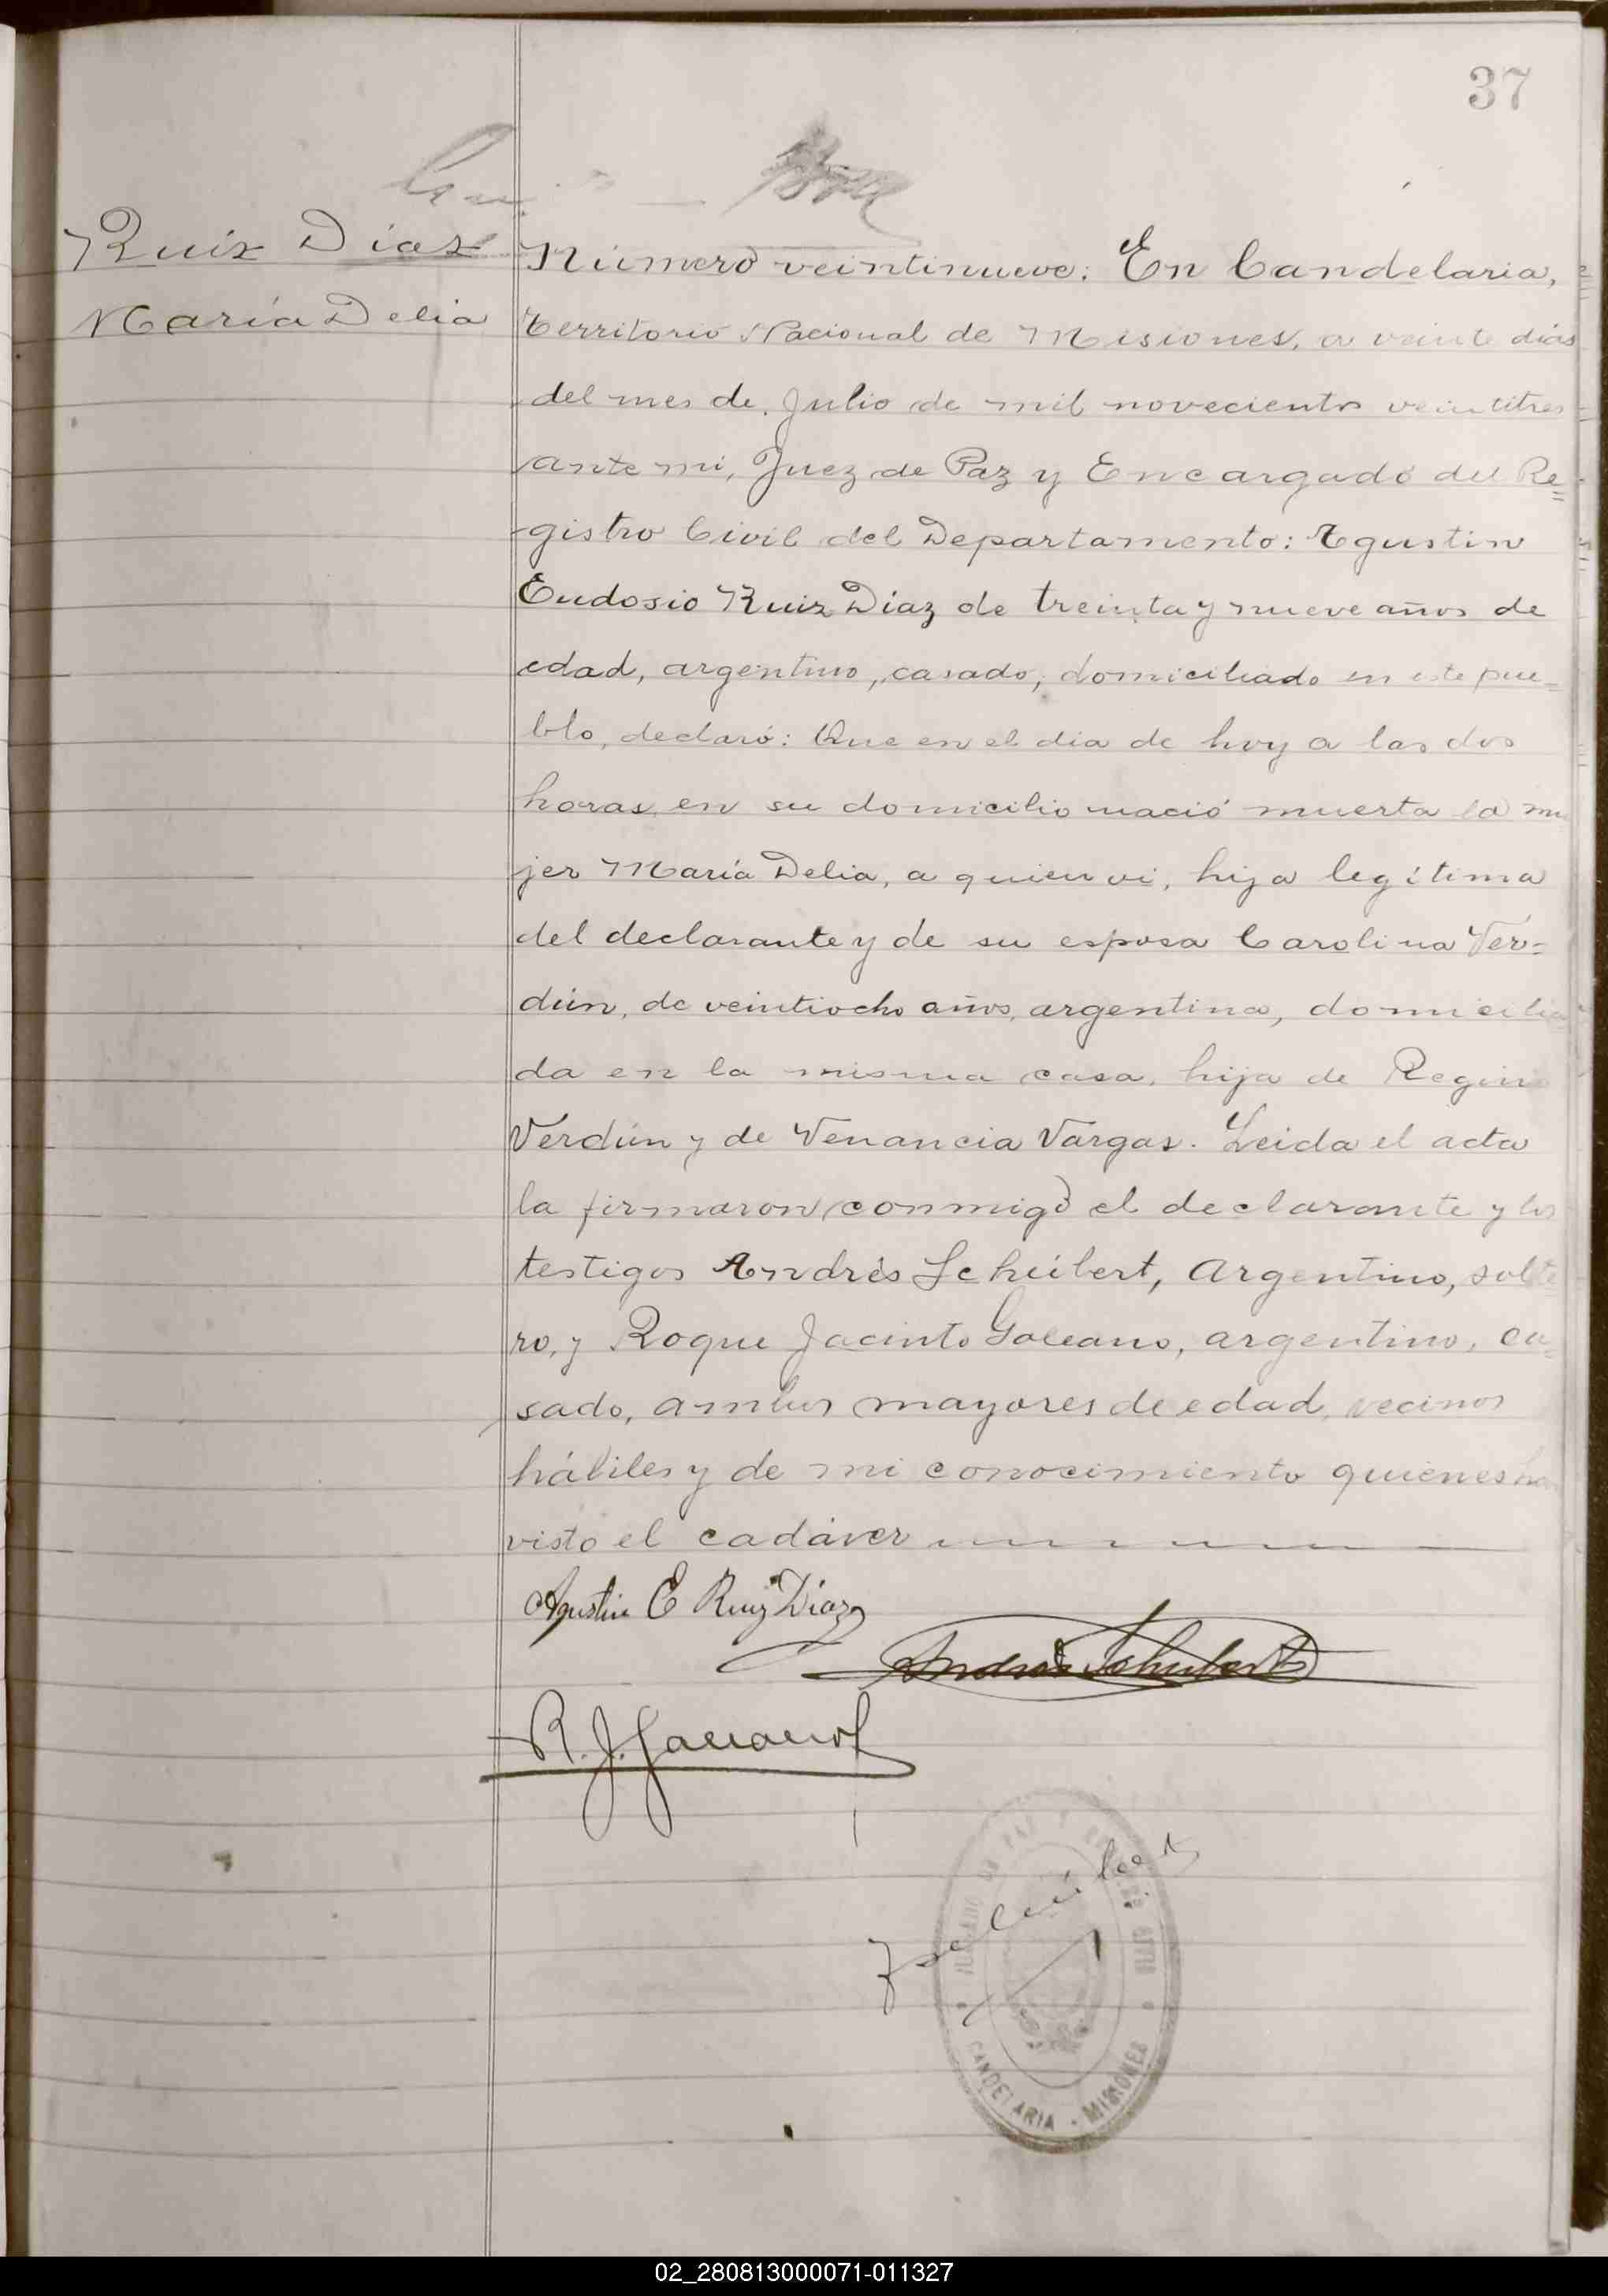 37
Ruiz Diaz
María Delia
Número veintinueve. En Candelaria,
Territorio Nacional de Misiones, a veinte días
del mes de Julio de mil novecientos veintitres
ante mi, Juez de Paz y Encargado del Re=
gistro Civil del Departamento: Agustin
Eudosio Ruiz Díaz de treinta y nueve años de
edad, argentino, casado, domiciliado en este pue=
blo, declaró: Que en el dia de hoy a las dos
horas, en su domicilio nació muerta la mu
jer María Delia, a quien vi, hija legítima
del declarante y de su esposa Carolina Ver=
dún, de veintiocho años, argentina, domicilia
da en la misma casa, hija de Regino
Verdún y de Venancia Vargas. Leida el acta
la firmaron conmigo el declarante y los
testigos Andrés Schúbert, Argentino, solte
ro, y Roque Jacinto Galeano, argentino, ca=
sado, ambos mayores de edad, vecinos
hábiles y de mi conocimiento quienes han
visto el cadáver
Agustin E Ruiz Díaz
Andrés Schubert
R. J. Galeano
CANDELARIA - MISIONES
02_280813000071-011327